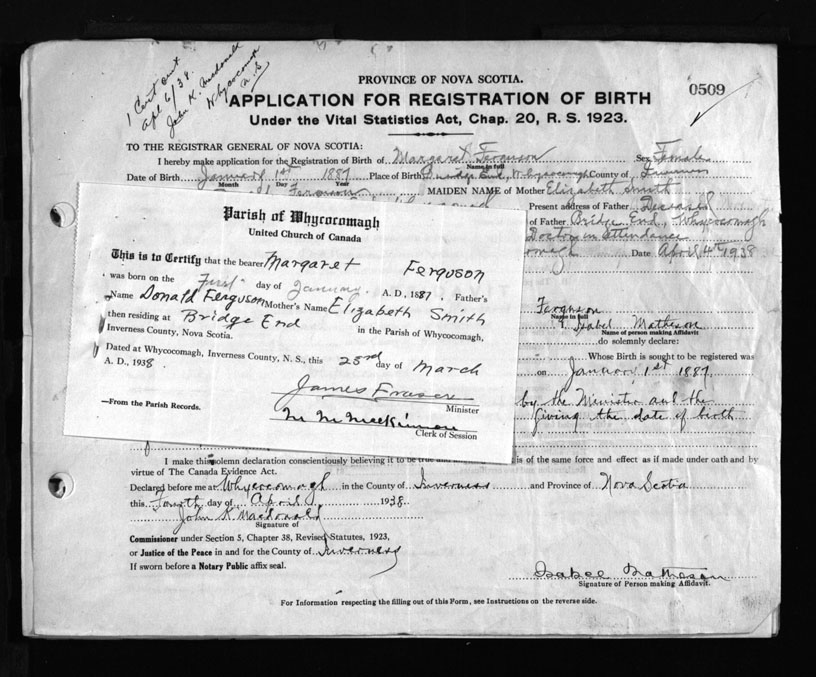 1 Cert out
Apl 6/38.
John K. Macdonald
Whycocomagh
N.S.
PROVINCE OF NOVA SCOTIA.
0509
APPLICATION FOR REGISTRATION OF BIRTH
Under the Vital Statistics Act, Chap. 20, R. S. 1923.
TO THE REGISTRAR GENERAL OF NOVA SCOTIA:
I hereby make application for the Registration of Birth of Margaret Ferguson Sex Female
Name in full
Date of Birth January 1st 1887 Place of Birth Bridge End, Whycocomagh County of
Month Day Year
Ferguson MAIDEN NAME of Mother Elizabeth Smith
Present address of Father Deceased
of Father Bridge End, Whycocomagh
Doctor in attendance
Date April 4th 1938
Parish of Whycocomagh
United Church of Canada
This is to Certify that the bearer Margaret Ferguson
was born on the First day of January. A. D., 1887. Father's
Name Donald Ferguson Mother's Name Elizabeth Smith
then residing at Bridge End in the Parish of Whycocomagh,
Inverness County, Nova Scotia.
Dated at Whycocomagh, Inverness County, N. S., this 23rd day of March
A. D., 1938.
James Fraser
Minister
—From the Parish Records.
M. M. MacKinnon
Clerk of Session
Ferguson
Name in full
I, Isabel Matheson
Name of person making Affidavit
do solemnly declare:
Whose Birth is sought to be registered was
on January 1st 1887.
by the Minister and the
giving the date of birth
I make this solemn declaration conscientiously believing it to be true and is of the same force and effect as if made under oath and by
virtue of The Canada Evidence Act.
Declared before me at Whycocomagh in the County of Inverness and Province of Nova Scotia
this Fourth day of April 1938
John K. Macdonald
Signature of
Commissioner under Section 5, Chapter 38, Revised Statutes, 1923,
or Justice of the Peace in and for the County of Inverness
If sworn before a Notary Public affix seal.
Isabel Matheson
Signature of Person making Affidavit.
For Information respecting the filling out of this Form, see Instructions on the reverse side.